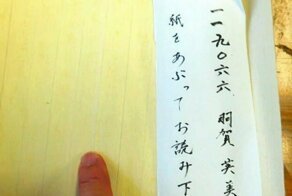 一一九〇六六 羽賀 英美
紙をあぶってお読み下